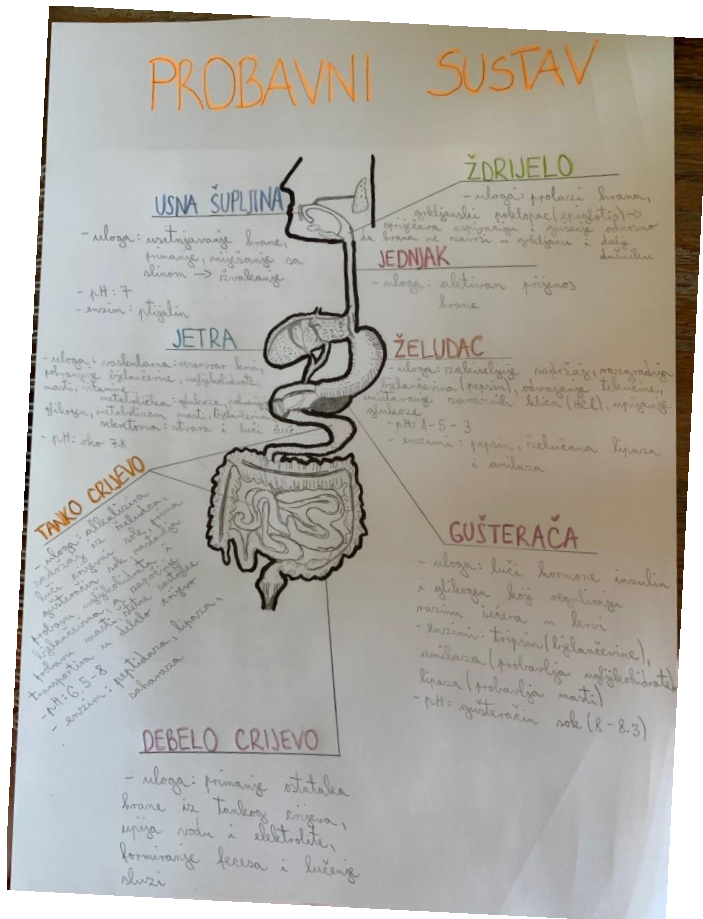 PROBAVNI SUSTAV
USNA ŠUPLJINA
- uloga: usitnjavanje hrane,
primanje, miješanje sa
slinom → žvakanje
- pH: 7
- enzim: ptijalin
ŽDRIJELO
- uloga: prolazi hrana,
grkljanski poklopac (epiglotis) →
sprječava aspiraciju i gušenje odnosno
da hrana ne završi u grkljanu i dalje
dušniku
JEDNJAK
- uloga: aktivan prijenos
hrane
JETRA
- uloga: vaskularna: rezervoar krvi,
pohranjuje bjelančevine, ugljikohidrate,
masti, vitamine
metabolička: glukoza, pohrana
glikogen, metabolizam masti, bjelančevina
sekretorna: stvara i luči žuč
- pH: oko 7.8
ŽELUDAC
- uloga: zakiseljuje sadržaj, razgradnja
bjelančevina (pepsin), odvajanje tekućine,
uništavanje zaraznih klica (HCl), upijanje
glukoze
- pH: 1-5-3
- enzimi: pepsin, želučana lipaza
i amilaza
TANKO CRIJEVO
- uloga: alkalizira
sadržaj iz želudca,
luči crijevni sok, prima
gušteračin sok nastavlja
probavu ugljikohidrata i
bjelančevina, a započinje
probavu masti, ostatke
transportira u debelo crijevo
- pH: 6.5-8
- enzim: peptidaza, lipaza,
saharaza
GUŠTERAČA
- uloga: luči hormone inzulin
i glikogen koji reguliraju
razinu šećera u krvi
- enzimi: tripsin (bjelančevine),
amilaza (probavlja ugljikohidrate)
lipaza (probavlja masti)
- pH: gušteračin sok (8-8.3)
DEBELO CRIJEVO
- uloga: primanje ostataka
hrane iz tankog crijeva,
upija vodu i elektrolite,
formiranje fecesa i lučenje
sluzi